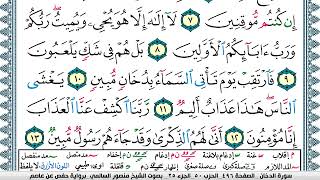 إِن كُنتُم مُّوقِنِينَ ٧ لَا إِلَٰهَ إِلَّا هُوَ يُحْيِۦ وَيُمِيتُ رَبُّكُمْ
وَرَبُّ ءَابَآئِكُمُ ٱلْأَوَّلِينَ ٨ بَلْ هُمْ فِى شَكٍّ يَلْعَبُونَ
٩ فَٱرْتَقِبْ يَوْمَ تَأْتِى ٱلسَّمَآءُ بِدُخَانٍ مُّبِينٍ ١٠ يَغْشَى
ٱلنَّاسَ هَٰذَا عَذَابٌ أَلِيمٌ ١١ رَّبَّنَا ٱكْشِفْ عَنَّا ٱلْعَذَابَ
إِنَّا مُؤْمِنُونَ ١٢ أَنَّىٰ لَهُمُ ٱلذِّكْرَىٰ وَقَدْ جَآءَهُمْ رَسُولٌ مُّبِينٌ ١٣
سورة الدخان الصفحة ٤٩٦ الحزب ٥٠ الجزء ٢٥ بصوت الشيخ منصور السالمي برواية حفص عن عاصم